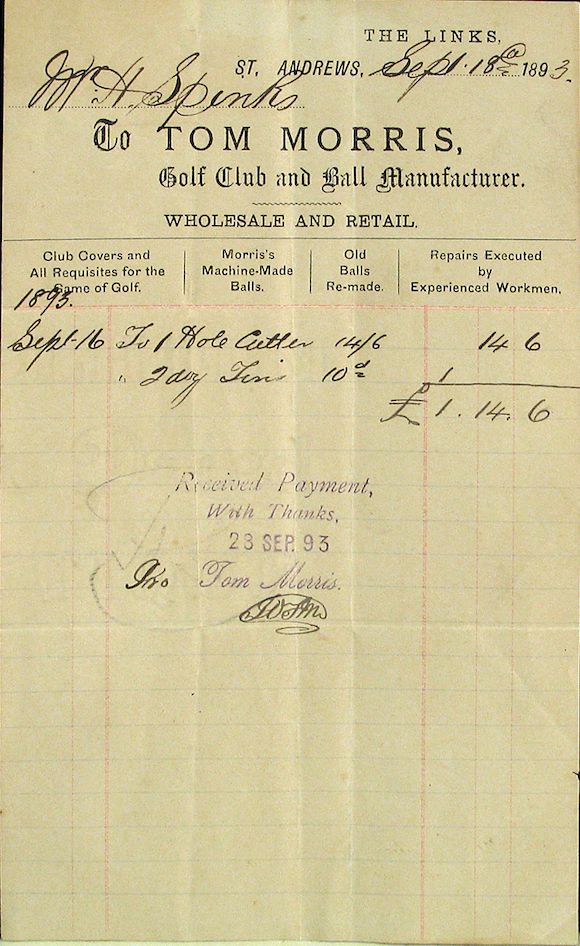 THE LINKS,
ST. ANDREWS, Sept. 18th 1893.
Mr. H. Spinks
To TOM MORRIS,
Golf Club and Ball Manufacturer.
WHOLESALE AND RETAIL.
Club Covers and
All Requisites for the
Game of Golf.
Morris's
Machine-Made
Balls.
Old
Balls
Re-made.
Repairs Executed
by
Experienced Workmen.
1893.
Sept. 16 To 1 Hole Cutter 14/6 14 6
" 2 doz Tins 10d 1
£ 1. 14. 6
Received Payment,
With Thanks,
23 SEP. 93
Pro Tom Morris.